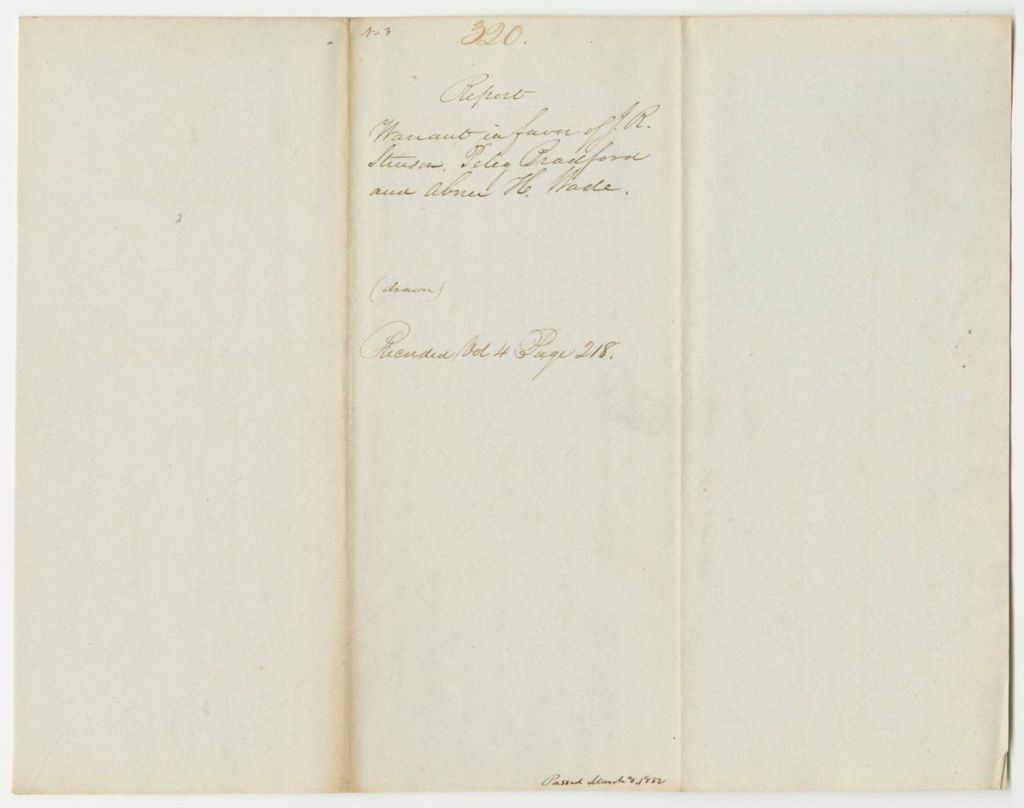 No 3
320.
Report
Warrant in favor of J. R.
Stinson, Peleg Bradford
and Abner H. Wade.
(drawn)
Recorded Vol 4 Page 218.
Passed March 3, 1852